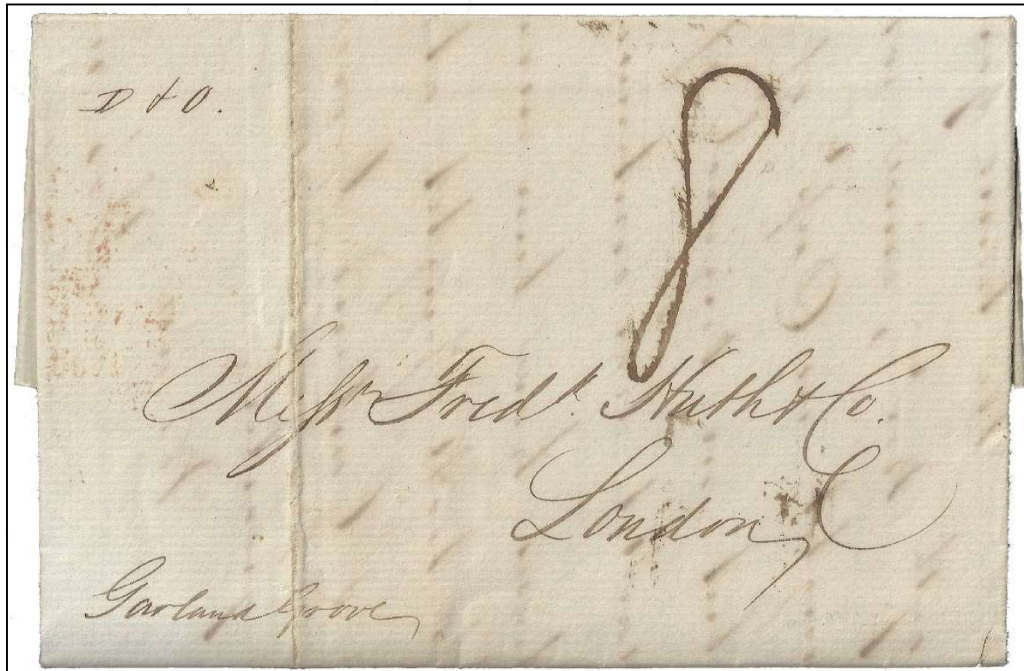 D & O.
8
Messrs Fredk. Huth & Co.
London
Garland Grove